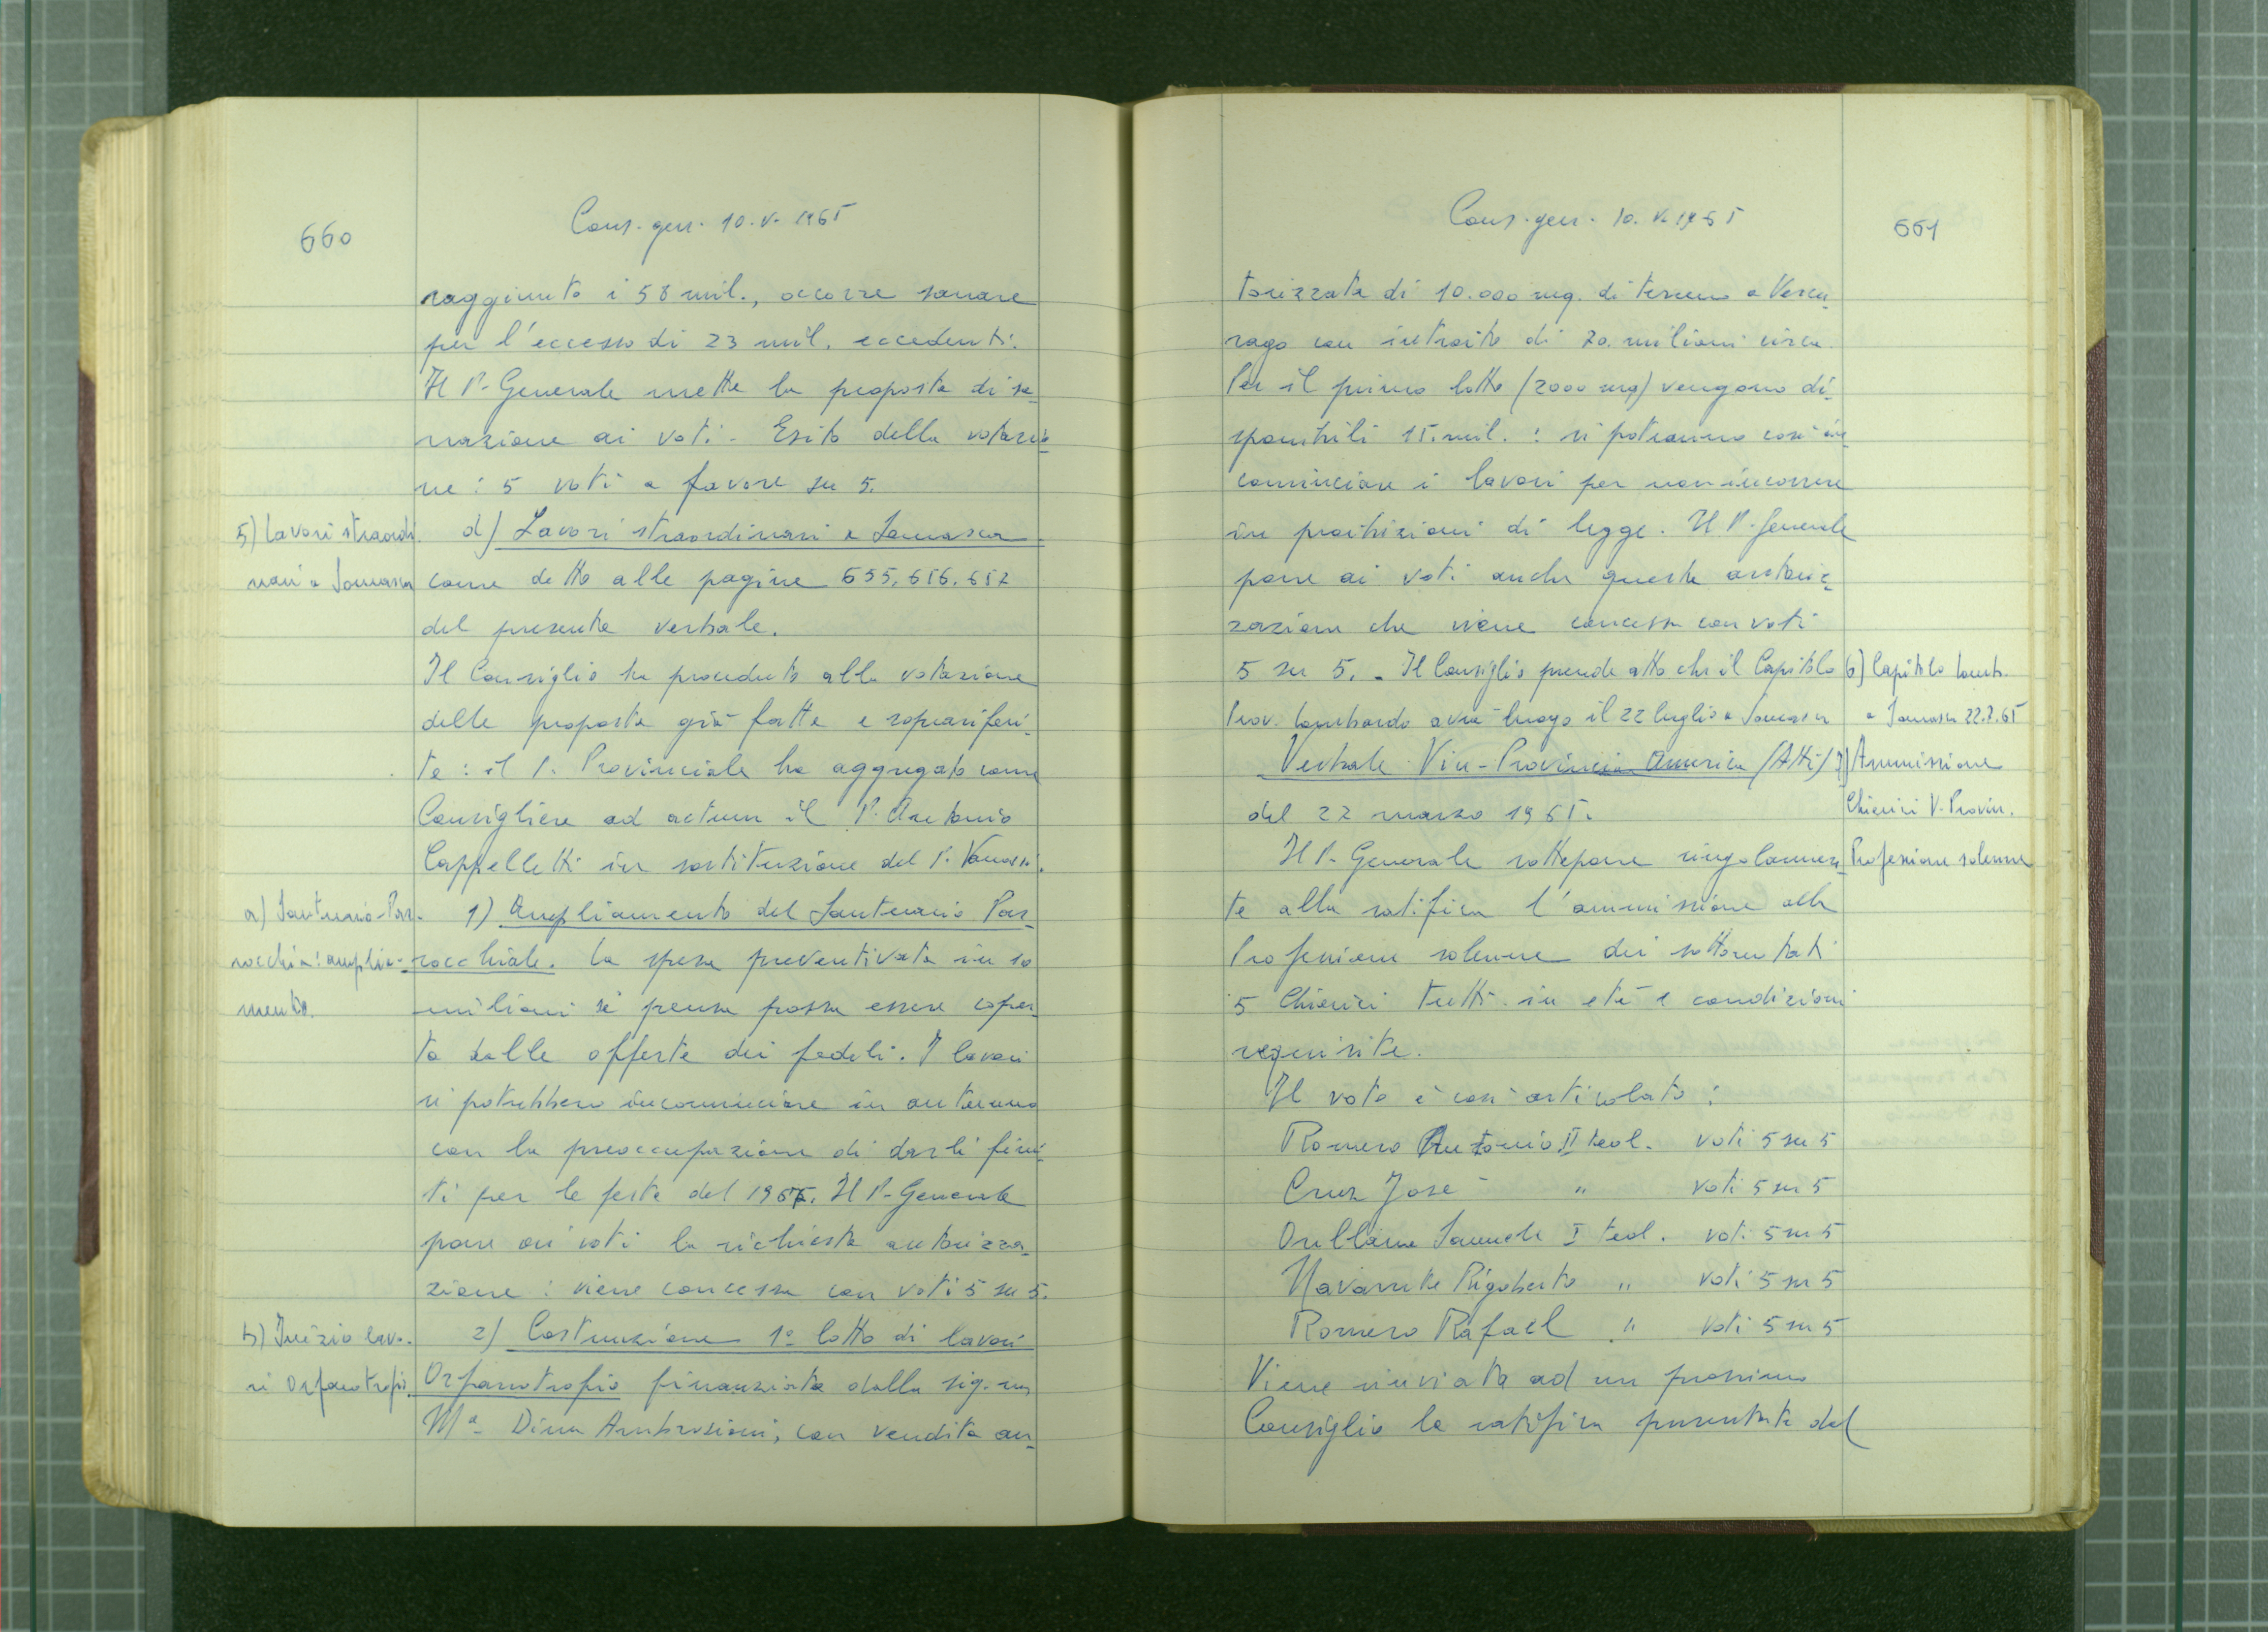 660
Cons. gen. 10. V. 1965
raggiunto i 58 mil., occorre sanare
per l'eccesso di 23 mil. eccedenti.
Il P. Generale mette la proposta di sa-
nazione ai voti. Esito della votazio-
ne: 5 voti a favore su 5.
5) Lavori straordi-
nari a Somasca
d) Lavori straordinari a Somasca
come detto alle pagine 655, 656, 657
del presente verbale.
Il Consiglio ha proceduto alla votazione
delle proposte già fatte e sopra riferi-
te: il P. Provinciale ha aggregato come
Consigliere ad actum il P. Antonio
Cappelletti in sostituzione del P. Vanossi.
a) Santuario-Par-
rocchia: amplia-
mento.
1) Ampliamento del Santuario Par-
rocchiale. La spesa preventivata in 10
milioni si pensa possa essere coper-
ta dalle offerte dei fedeli. I lavori
si potrebbero incominciare in autunno
con la preoccupazione di darli fini-
ti per le feste del 1967. Il P. Generale
pone ai voti la richiesta autorizza-
zione: viene concessa con voti 5 su 5.
b) Inizio lavo-
ri Orfanotrofio.
2) Costruzione 1° lotto di lavori
Orfanotrofio finanziata dalla sig.na
Mª Dina Ambrosioni, con vendita au-
Cons. gen. 10. V. 1965
661
torizzata di 10.000 mq. di terreno a Vercu-
rago con introito di 20 milioni circa.
Per il primo lotto (2000 mq) vengono di-
sponibili 15 mil.: si potranno così in-
cominciare i lavori per non incorrere
in proibizioni di legge. Il P. Generale
pone ai voti anche questa autoriz-
zazione che viene concessa con voti
5 su 5. - Il Consiglio prende atto che il Capitolo
Prov. Lombardo avrà luogo il 22 luglio a Somasca
6) Capitolo Lomb.
a Somasca 22.7.65
Verbale Vice-Provincia America (Atti)
del 22 marzo 1965.
7) Ammissione
Chierici V. Provin.
Professione solenne
Il P. Generale sottopone singolarmen-
te alla ratifica l'ammissione alla
Professione solenne dei sottonotati
5 Chierici tutti in età e condizioni
requisite.
Il voto è così articolato:
Romero Antonio II teol. voti 5 su 5
Cruz José " voti 5 su 5
Orellana Samuele I teol. voti 5 su 5
Navarrete Rigoberto " voti 5 su 5
Romero Rafael " voti 5 su 5
Viene rinviata ad un prossimo
Consiglio la ratifica presentata del